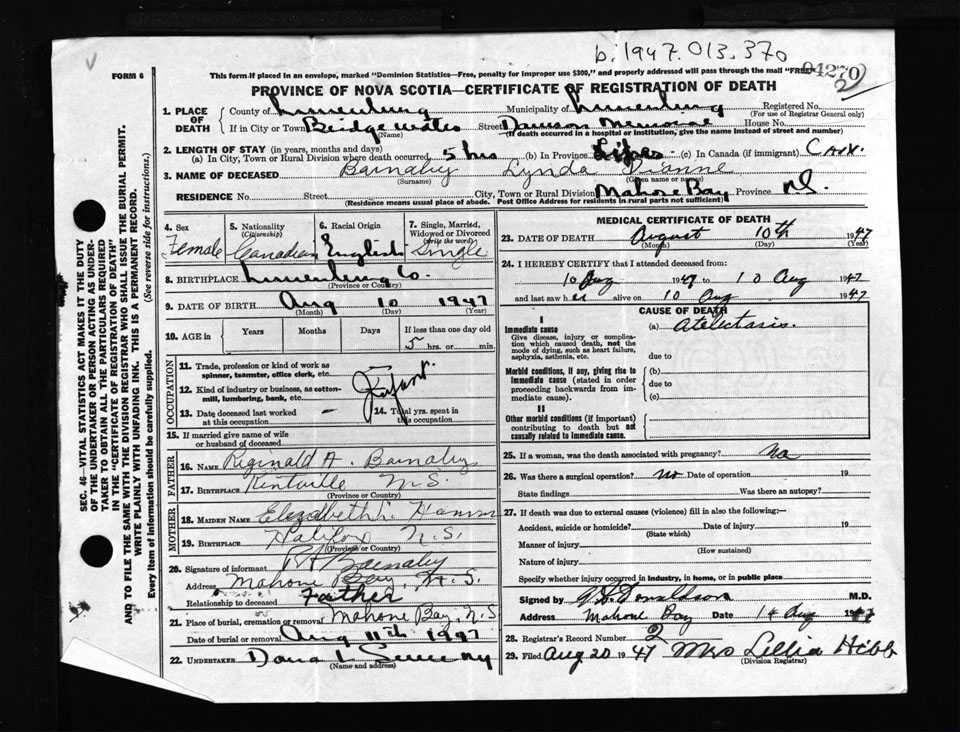 b. 1947. 013. 370
FORM 6
This form if placed in an envelope, marked "Dominion Statistics—Free, penalty for improper use $300," and properly addressed will pass through the mail "FREE"
04270
2
PROVINCE OF NOVA SCOTIA—CERTIFICATE OF REGISTRATION OF DEATH
1. PLACE OF DEATH County of Lunenburg Municipality of Lunenburg Registered No.
(For use of Registrar General only)
If in City or Town Bridgewater Street Dawson Memorial House No.
(Name) (If death occurred in a hospital or institution, give the name instead of street and number)
2. LENGTH OF STAY (in years, months and days)
(a) In City, Town or Rural Division where death occurred 5 hrs (b) In Province Life (c) In Canada (if immigrant)
3. NAME OF DECEASED Barnaby Lynda Dianne
(Surname) (Given name or names)
RESIDENCE No. Street City, Town or Rural Division Mahone Bay Province NS.
(Residence means usual place of abode. Post Office Address for residents in rural parts not sufficient)
4. Sex Female
5. Nationality (Citizenship) Canadian
6. Racial Origin English
7. Single, Married, Widowed or Divorced (write the word) Single
8. BIRTHPLACE Lunenburg Co.
(Province or Country)
9. DATE OF BIRTH Aug 10 1947
(Month) (Day) (Year)
10. AGE in Years Months Days If less than one day old
5 hrs. or min.
OCCUPATION
11. Trade, profession or kind of work as spinner, teamster, office clerk, etc.
12. Kind of industry or business, as cotton-mill, lumbering, bank, etc.
Infant.
13. Date deceased last worked at this occupation
14. Total yrs. spent in this occupation
15. If married give name of wife or husband of deceased
FATHER
16. NAME Reginald A. Barnaby
17. BIRTHPLACE Kentville N.S.
(Province or Country)
MOTHER
18. MAIDEN NAME Elizabeth Hamm
19. BIRTHPLACE Halifax N.S.
(Province or Country)
20. Signature of informant RA Barnaby
Address Mahone Bay, N.S.
Relationship to deceased Father
21. Place of burial, cremation or removal Mahone Bay, N.S
Date of burial or removal Aug 11th 1947
22. UNDERTAKER Dana L Sweeny
(Name and address)
MEDICAL CERTIFICATE OF DEATH
23. DATE OF DEATH August 10th 1947
(Month) (Day) (Year)
24. I HEREBY CERTIFY that I attended deceased from:
10 Aug 1947 to 10 Aug 1947
and last saw her alive on 10 Aug 1947
CAUSE OF DEATH
I
Immediate cause
Give disease, injury or complication which caused death, not the mode of dying, such as heart failure, asphyxia, asthenia, etc.
(a) Atelectasis.
due to
Morbid conditions, if any, giving rise to immediate cause (stated in order proceeding backwards from immediate cause).
(b)
due to
(c)
II
Other morbid conditions (if important) contributing to death but not causally related to immediate cause.
25. If a woman, was the death associated with pregnancy? No
26. Was there a surgical operation? No Date of operation 19
State findings Was there an autopsy?
27. If death was due to external causes (violence) fill in also the following:—
Accident, suicide or homicide? Date of injury 19
(State which)
Manner of injury
(How sustained)
Nature of injury
Specify whether injury occurred in industry, in home, or in public place
Signed by Donaldson M.D.
Address Mahone Bay Date 14 Aug 1947
28. Registrar's Record Number 2
29. Filed Aug 20 1947 Mrs Lillia Hibb
(Division Registrar)
SEC. 46—VITAL STATISTICS ACT MAKES IT THE DUTY
OF THE UNDERTAKER OR PERSON ACTING AS UNDER-
TAKER TO OBTAIN ALL THE PARTICULARS REQUIRED
IN THE "CERTIFICATE OF REGISTRATION OF DEATH"
AND TO FILE THE SAME WITH THE DIVISION REGISTRAR WHO SHALL ISSUE THE BURIAL PERMIT.
WRITE PLAINLY WITH UNFADING INK. THIS IS A PERMANENT RECORD.
Every item of Information should be carefully supplied. (See reverse side for instructions.)